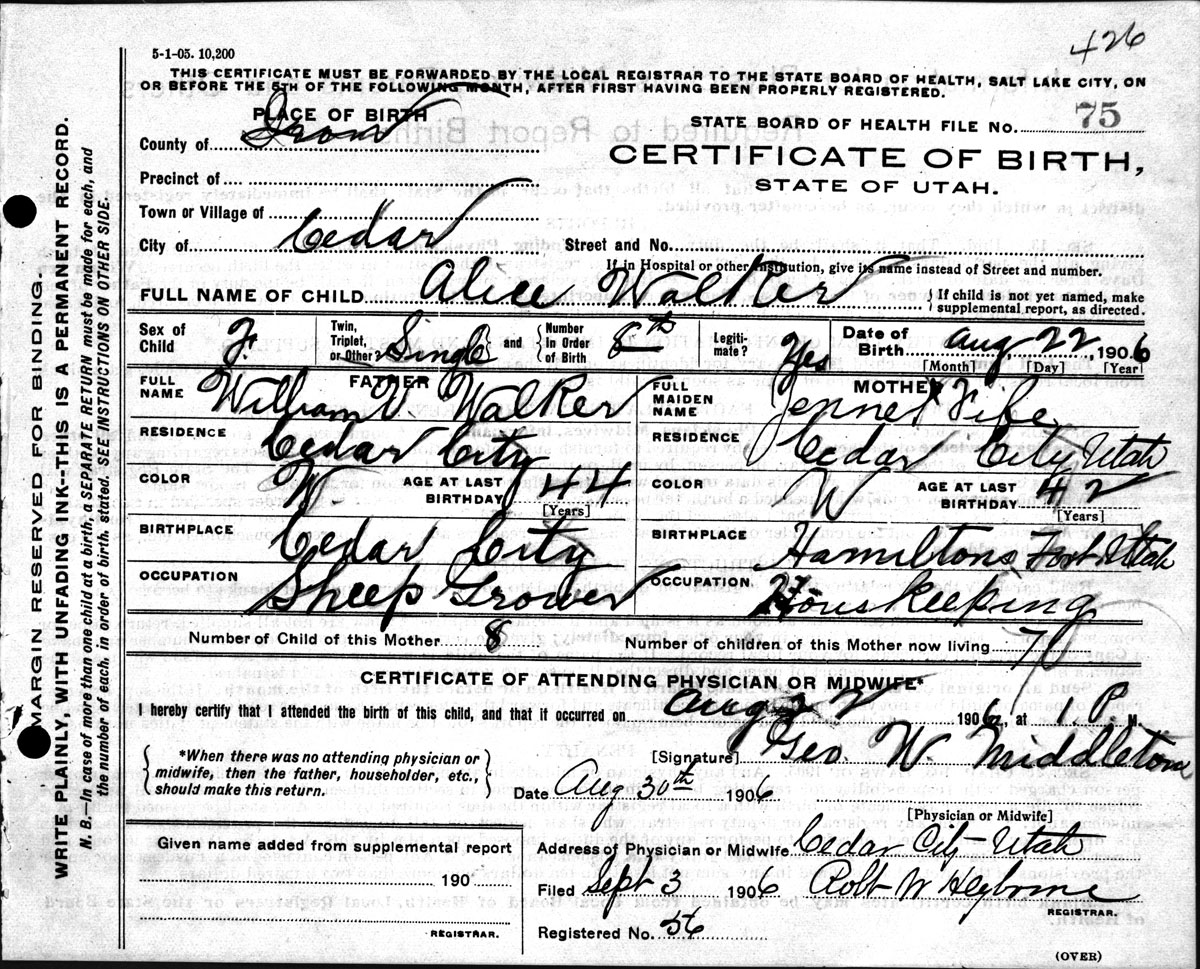 426
5-1-05. 10,200
THIS CERTIFICATE MUST BE FORWARDED BY THE LOCAL REGISTRAR TO THE STATE BOARD OF HEALTH, SALT LAKE CITY, ON
OR BEFORE THE 5TH OF THE FOLLOWING MONTH, AFTER FIRST HAVING BEEN PROPERLY REGISTERED.
PLACE OF BIRTH
County of Iron
Precinct of
Town or Village of
City of Cedar
STATE BOARD OF HEALTH FILE No. 75
CERTIFICATE OF BIRTH,
STATE OF UTAH.
Street and No.
If in Hospital or other Institution, give its name instead of Street and number.
FULL NAME OF CHILD Alice Walker
If child is not yet named, make
supplemental report, as directed.
Sex of Child F.
Twin, Triplet, or Other? Single and Number in Order of Birth 8th
Legitimate? Yes
Date of Birth Aug, 22, 1906
[Month] [Day] [Year]
FATHER
FULL NAME William V Walker
RESIDENCE Cedar City
COLOR W AGE AT LAST BIRTHDAY 44
[Years]
BIRTHPLACE Cedar City
OCCUPATION Sheep Grower
MOTHER
FULL MAIDEN NAME Jennet Fife
RESIDENCE Cedar City Utah
COLOR W AGE AT LAST BIRTHDAY 42
[Years]
BIRTHPLACE Hamiltons Fort Utah
OCCUPATION Houskeeping
Number of Child of this Mother 8
Number of children of this Mother now living 7
CERTIFICATE OF ATTENDING PHYSICIAN OR MIDWIFE*
I hereby certify that I attended the birth of this child, and that it occurred on Aug 22 1906, at 1 P. M.
*When there was no attending physician or
midwife, then the father, householder, etc.,
should make this return.
[Signature] Geo. W. Middleton
Date Aug 30th 1906
[Physician or Midwife]
Given name added from supplemental report
190
REGISTRAR.
Address of Physician or Midwife Cedar City Utah
Filed Sept 3 1906 Robt W Heyborne
REGISTRAR.
Registered No. 56
(OVER)
MARGIN RESERVED FOR BINDING.
WRITE PLAINLY, WITH UNFADING INK--THIS IS A PERMANENT RECORD.
N. B.--In case of more than one child at a birth, a SEPARATE RETURN must be made for each, and
the number of each, in order of birth, stated. SEE INSTRUCTIONS ON OTHER SIDE.